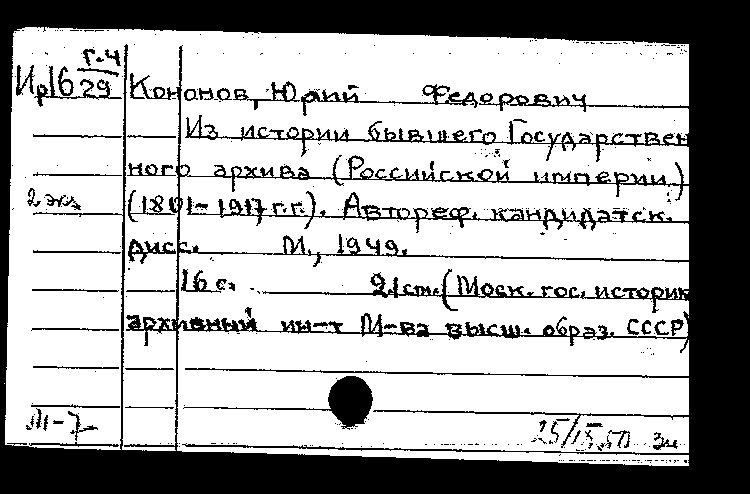 Г.4
Ир16 29 Кононов, Юрий Федорович
Из истории бывшего Государствен
ного архива (Российской империи)
2 экз. (1801-1917 г.г.). Автореф. кандидатск.
дисс. М., 1949.
16 с. 21 cm. (Моск. гос. историк
архивный ин-т М-ва высш. образ. СССР)
М-7